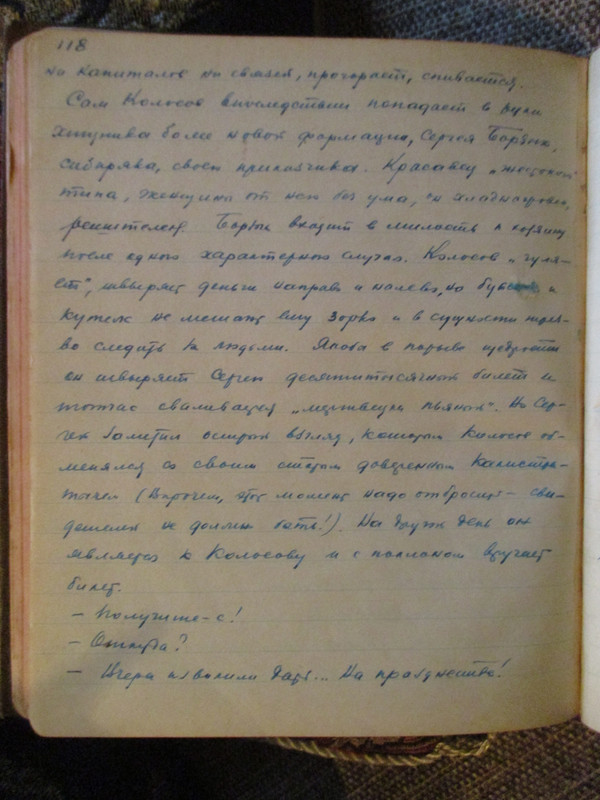 118
ни капиталов ни связей, прогорает, спивается.
Сам Колосов впоследствии попадает в руки
хищника более новой формации, Сергея
своего приказчика. Красавец „жестокого
типа, женщины от него без ума, он хладнокровен,
решителен. входит в милость к хозяину
после одного характерного случая. Колосов „гуля-
ет", швыряет деньги направо и налево, но и
кутеж не мешают ему зорко и в сущности трез-
во следить за людьми. Якобы в порыве щедрости
он швыряет Сергею десятитысячный билет и
тотчас сваливается „мертвецки пьяный". Но Сер-
гей заметил острый взгляд, которым Колосов об-
менялся со своим старым доверенным Калистра-
тычем (Впрочем, этот момент надо отбросить — сви-
детелей не должно быть!). На другой день он
является к Колосову и с поклоном вручает
билет.
— Получите-с!
— Откуда?
— Вчера изволили дать... На празднестве!